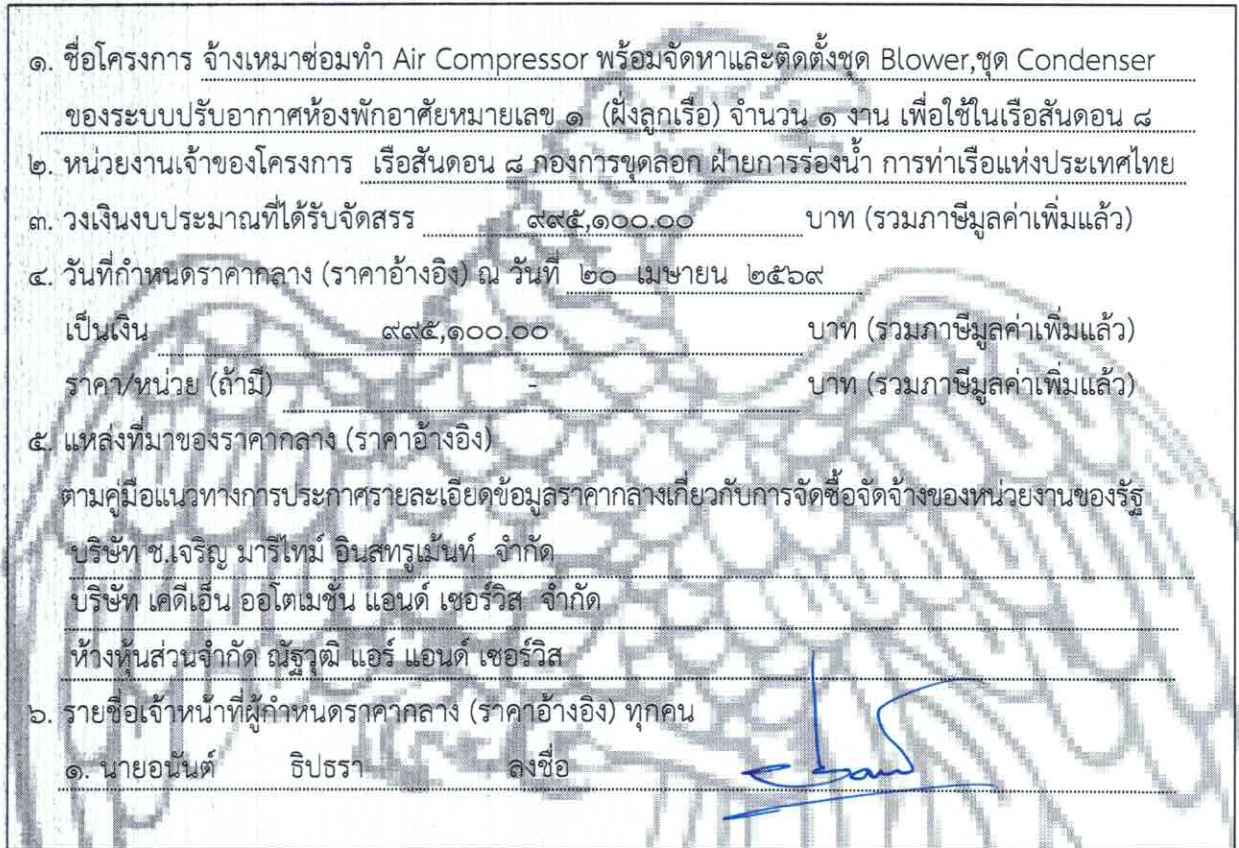 ๑. ชื่อโครงการ จ้างเหมาซ่อมทำ Air Compressor พร้อมจัดหาและติดตั้งชุด Blower,ชุด Condenser
ของระบบปรับอากาศห้องพักอาศัยหมายเลข ๑ (ฝั่งลูกเรือ) จำนวน ๑ งาน เพื่อใช้ในเรือสันดอน ๘
๒. หน่วยงานเจ้าของโครงการ เรือสันดอน ๘ กองการขุดลอก ฝ่ายการร่องน้ำ การท่าเรือแห่งประเทศไทย
๓. วงเงินงบประมาณที่ได้รับจัดสรร ๙๙๕,๑๐๐.๐๐ บาท (รวมภาษีมูลค่าเพิ่มแล้ว)
๔. วันที่กำหนดราคากลาง (ราคาอ้างอิง) ณ วันที่ ๒๐ เมษายน ๒๕๖๙
เป็นเงิน ๙๙๕,๑๐๐.๐๐ บาท (รวมภาษีมูลค่าเพิ่มแล้ว)
ราคา/หน่วย (ถ้ามี) - บาท (รวมภาษีมูลค่าเพิ่มแล้ว)
๕. แหล่งที่มาของราคากลาง (ราคาอ้างอิง)
ตามคู่มือแนวทางการประกาศรายละเอียดข้อมูลราคากลางเกี่ยวกับการจัดซื้อจัดจ้างของหน่วยงานของรัฐ
บริษัท ช.เจริญ มารีไทม์ อินสทรูเม้นท์ จำกัด
บริษัท เคดีเอ็น ออโตเมชัน แอนด์ เซอร์วิส จำกัด
ห้างหุ้นส่วนจำกัด ณัฐวุฒิ แอร์ แอนด์ เซอร์วิส
๖. รายชื่อเจ้าหน้าที่ผู้กำหนดราคากลาง (ราคาอ้างอิง) ทุกคน
๑. นายอนันต์ ธิปธรา ลงชื่อ